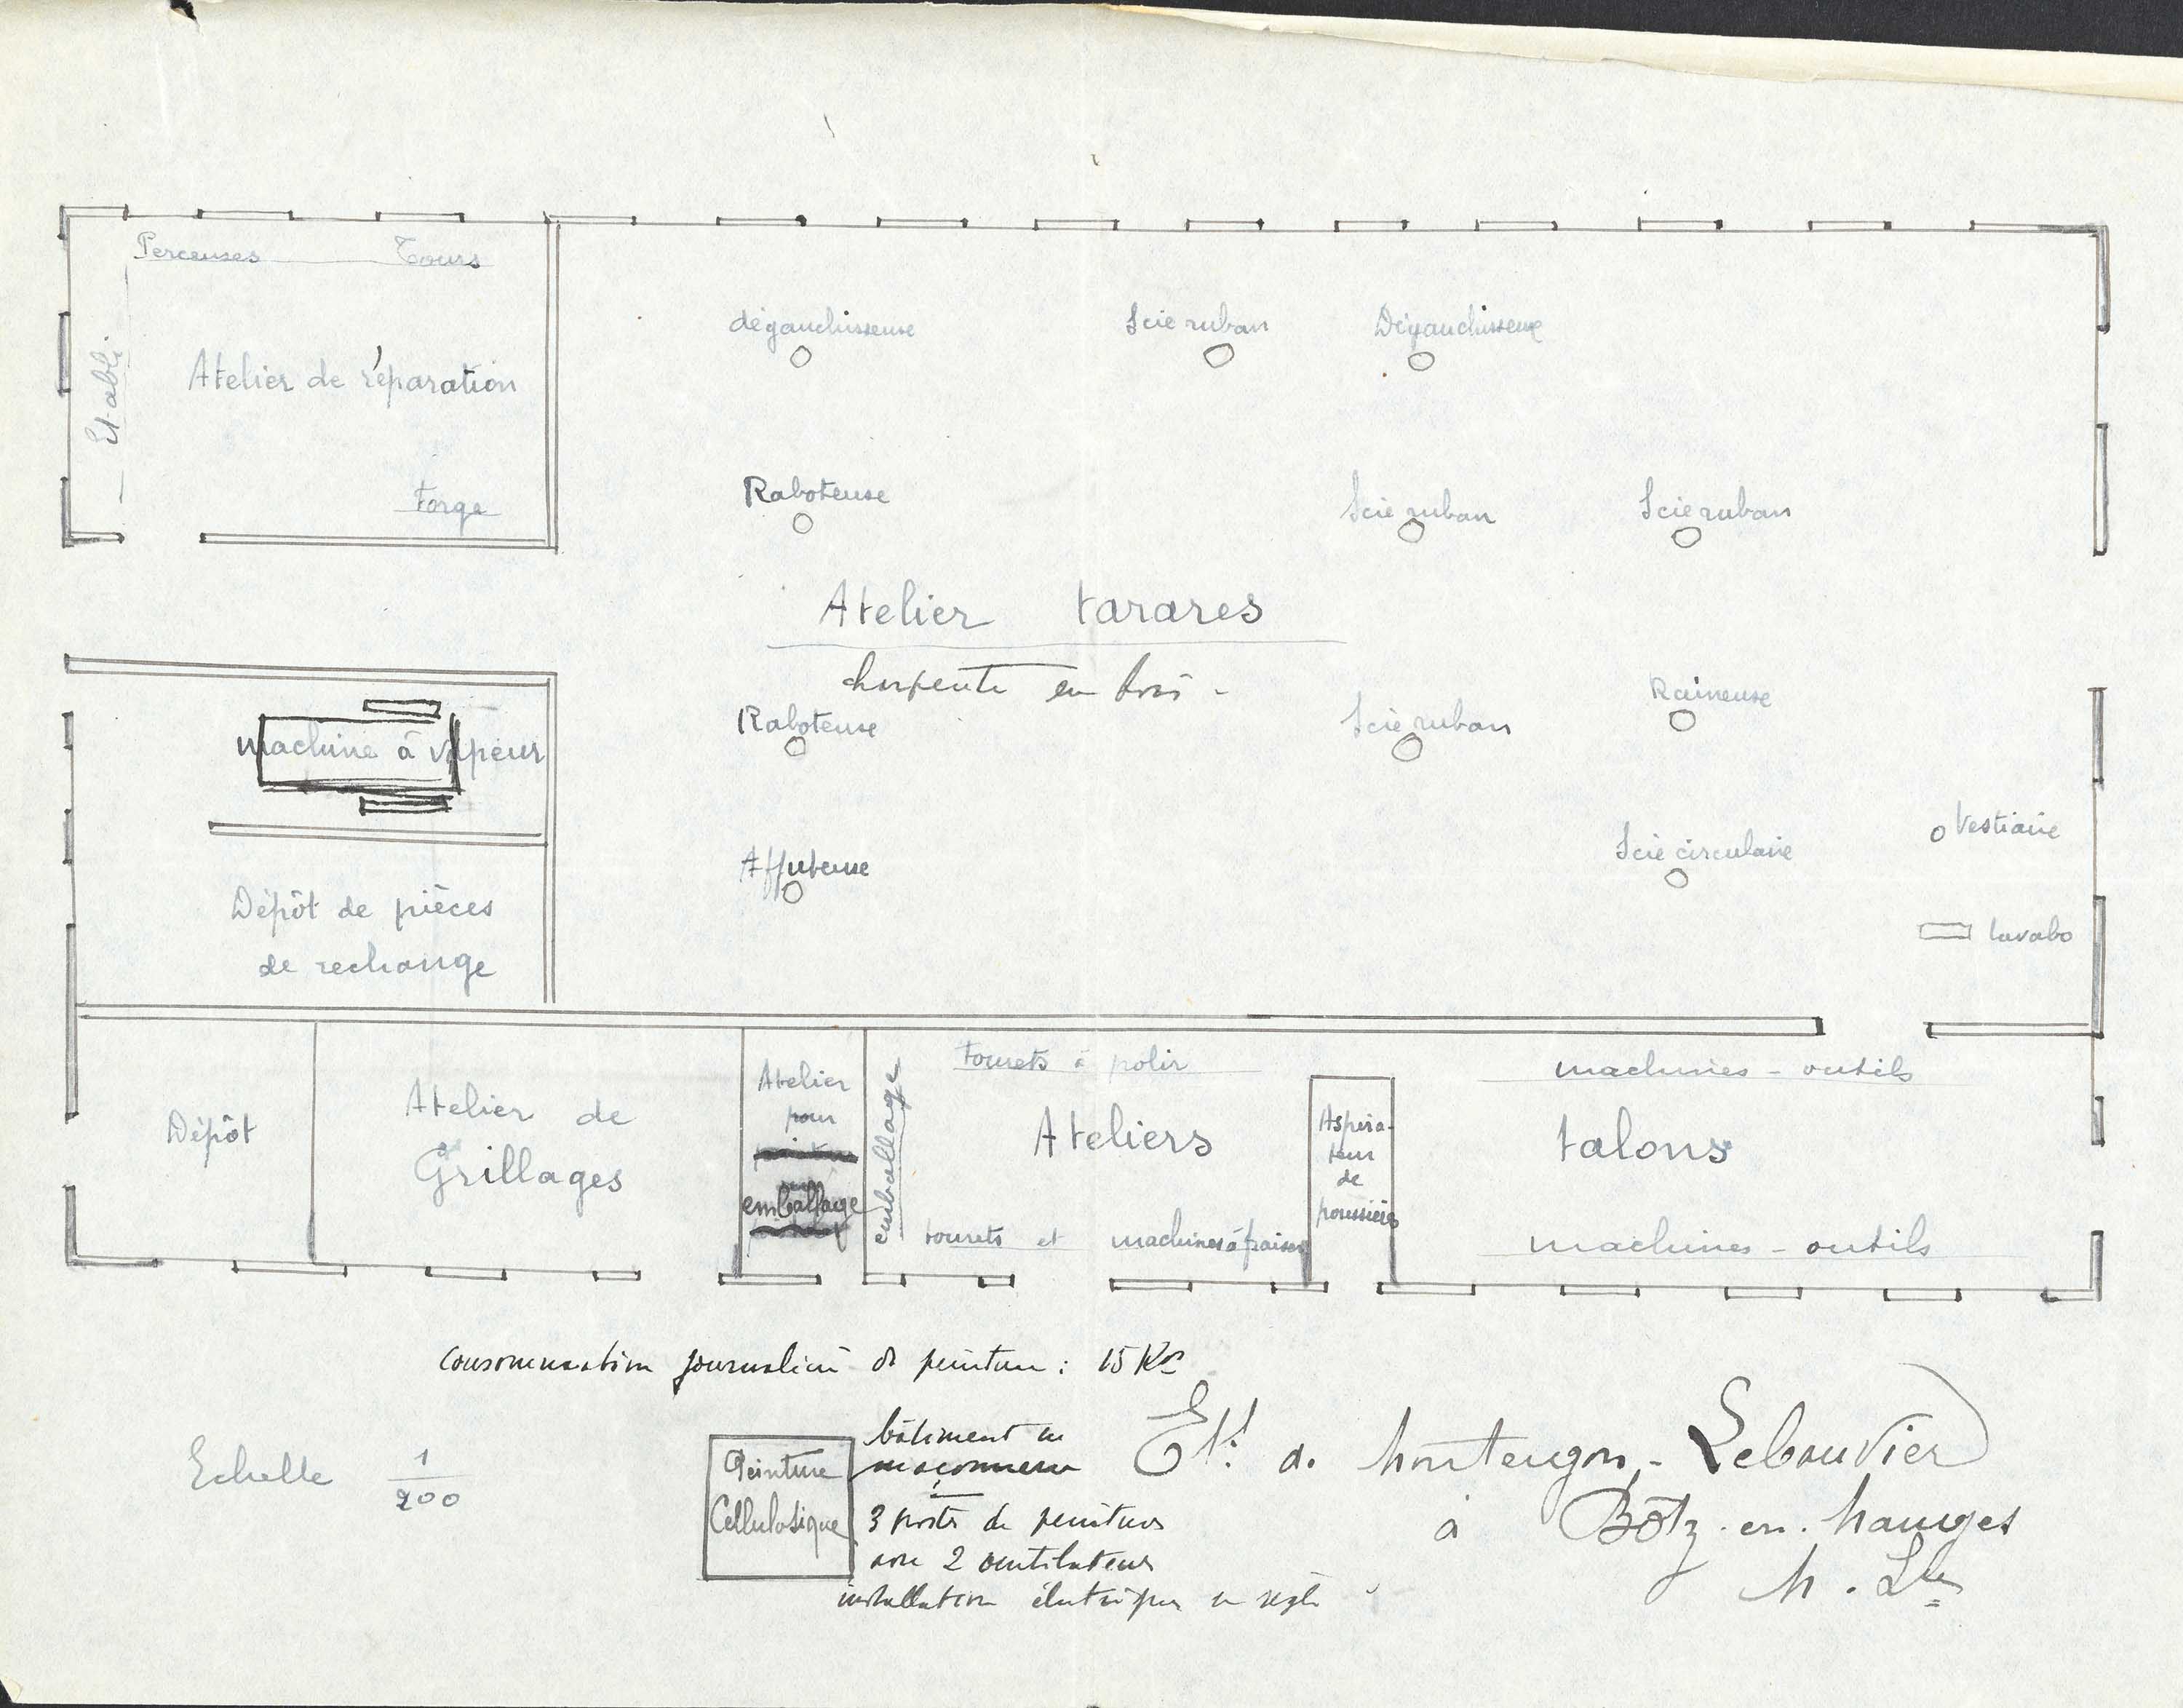 Perceuses Tours
Etabli
Atelier de réparation
Forge
dégauchisseuse
Scie ruban
Dégauchisseuse
Raboteuse
Scie ruban
Scie ruban
Atelier tarares
charpente en bois -
machine à vapeur
Raboteuse
Scie ruban
Raineuse
Affuteuse
Scie circulaire
Vestiaire
lavabo
Dépôt de pièces
de rechange
Dépôt
Atelier de
Grillages
Atelier
pour
emballage
emballage
Tourets à polir
Ateliers
tourets et machines à fraiser
Aspira-
teur
de
poussières
machines - outils
talons
machines - outils
Consommation journalière de peinture : 15 Kos
Echelle 1/200
Peinture
Cellulosique
bâtiment en
maçonnerie
3 postes de peinture
avec 2 ventilateurs
installation électrique en règle
Ets. de Montengon - Lebouvier
à Bôtz. en. Mauges
M. L